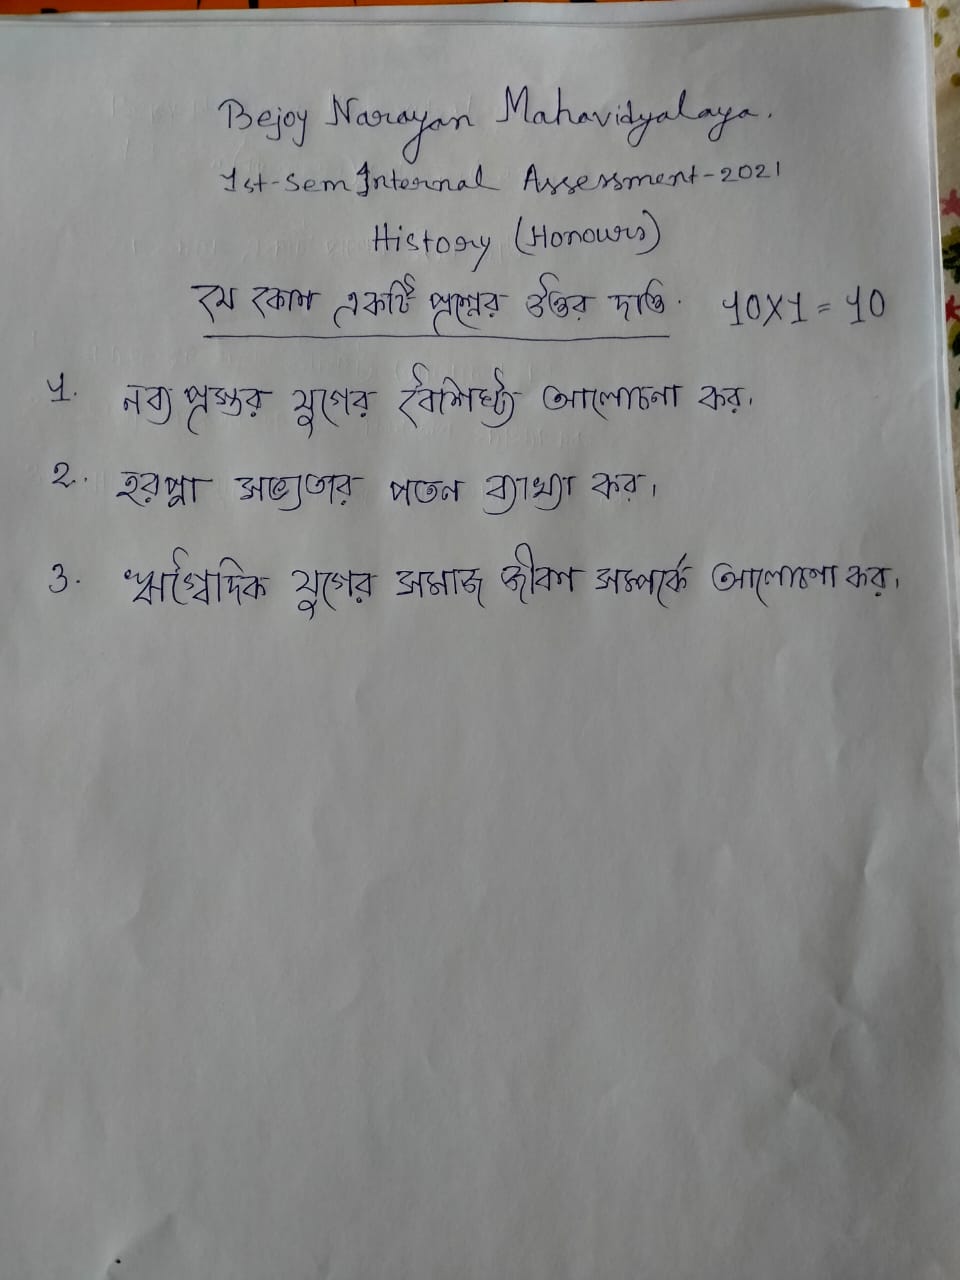 Bejoy Narayan Mahavidyalaya.
1st-Sem Internal Assessment-2021
History (Honours)
যে কোন একটি প্রশ্নের উত্তর দাও. 10X1=10
1. নব্য প্রস্তর যুগের বৈশিষ্ট্য আলোচনা কর।
2. হরপ্পা সভ্যতার পতন ব্যাখ্যা কর।
3. ঋগ্বৈদিক যুগের সমাজ জীবন সম্পর্কে আলোচনা কর।